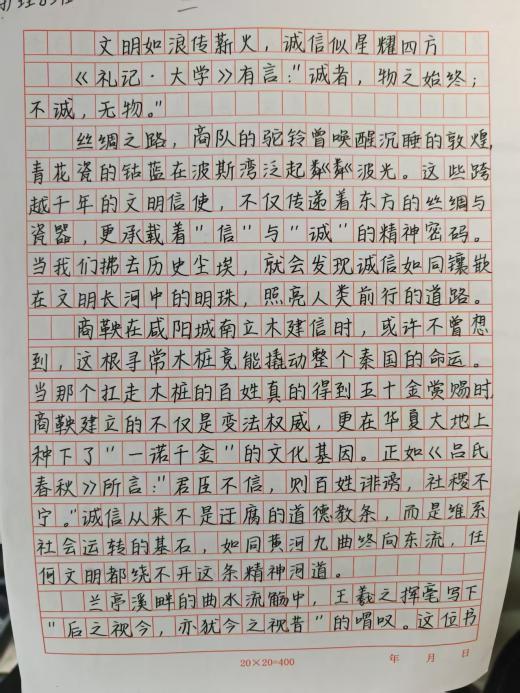 文明如浪传薪火，诚信似星耀四方
《礼记·大学》有言："诚者，物之始终；
不诚，无物。"
丝绸之路，商队的驼铃曾唤醒沉睡的敦煌，
青花瓷的钴蓝在波斯湾泛起粼粼波光。这些跨
越千年的文明信使，不仅传递着东方的丝绸与
瓷器，更承载着"信"与"诚"的精神密码。
当我们拂去历史尘埃，就会发现诚信如同镶嵌
在文明长河中的明珠，照亮人类前行的道路。
商鞅在咸阳城南立木建信时，或许不曾想
到，这根寻常木桩竟能撬动整个秦国的命运。
当那个扛走木桩的百姓真的得到五十金赏赐时，
商鞅建立的不仅是变法权威，更在华夏大地上
种下了"一诺千金"的文化基因。正如《吕氏
春秋》所言："君臣不信，则百姓诽谤，社稷不
宁。"诚信从来不是迂腐的道德教条，而是维系
社会运转的基石，如同黄河九曲终向东流，任
何文明都绕不开这条精神河道。
兰亭溪畔的曲水流觞中，王羲之挥毫写下
"后之视今，亦犹今之视昔"的喟叹。这位书
20×20=400 年 月 日